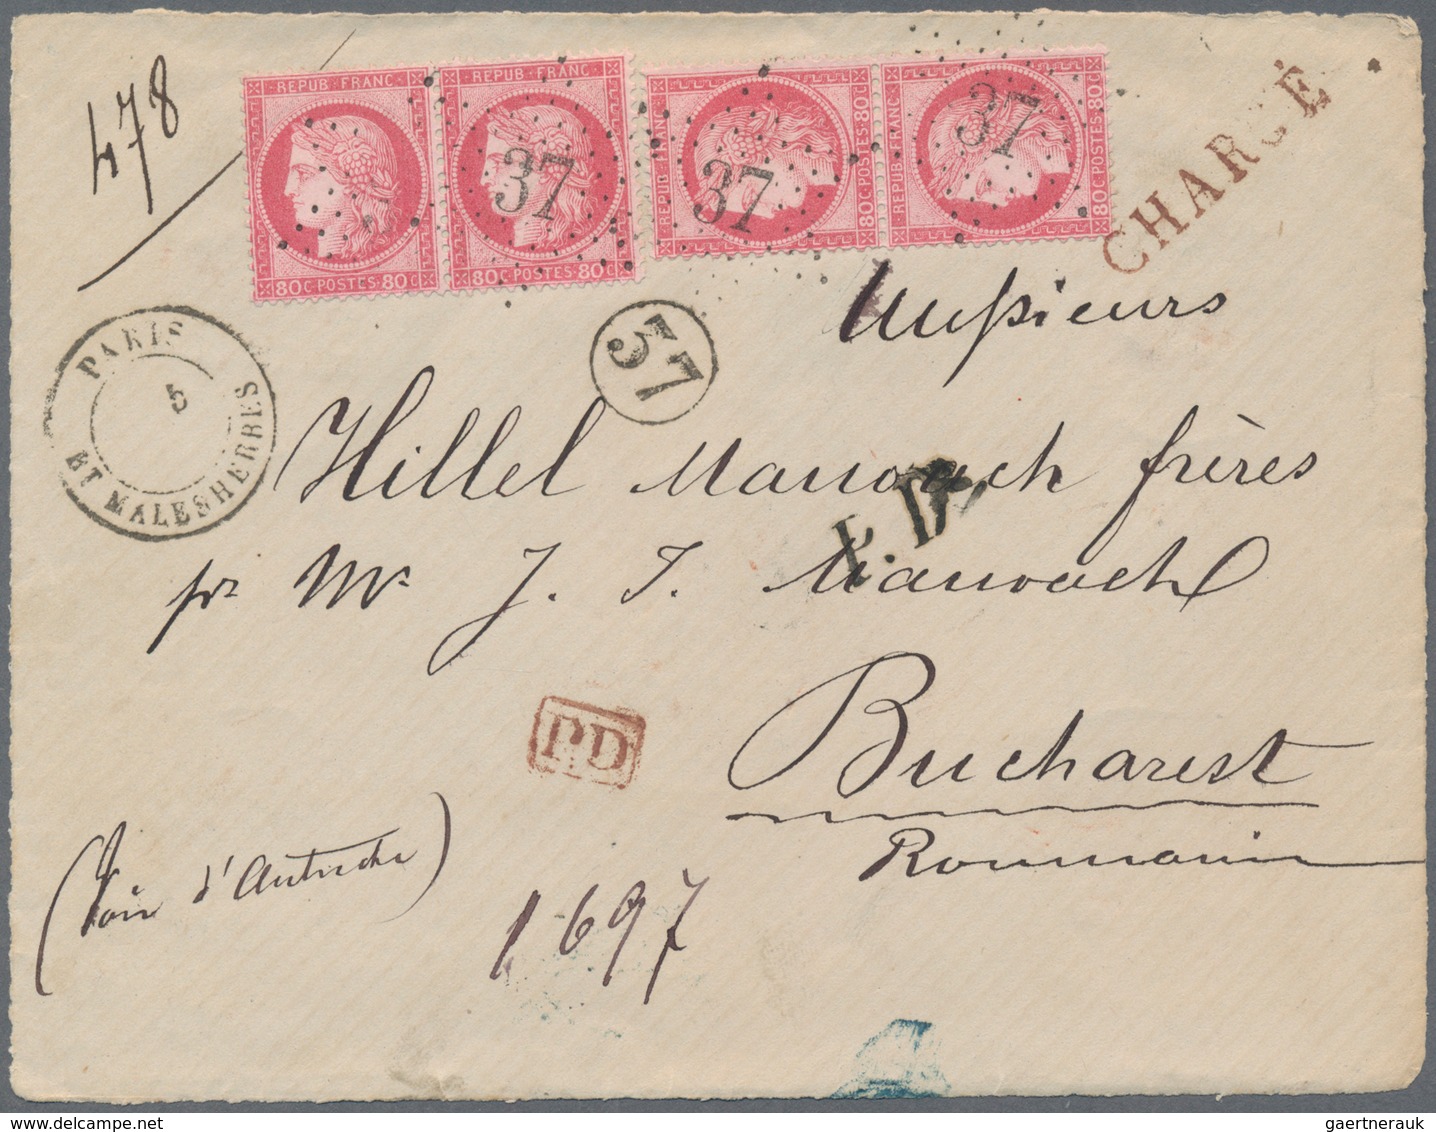 478
REPUB·FRANC
80C·POSTES·80C
REPUB·FRANC
80C·POSTES·80C
REPUB·FRANC
80C·POSTES·80C
REPUB·FRANC
80C·POSTES·80C
37
37
37
CHARGÉ
PARIS
5
BT MALESHERBES
37
Messieurs
Hillel Manoach frères
P.D.
pr Mr J. J. Manoach
PD
Bucharest
Roumanie
(Voie d'Autriche)
1697
gaertnerauk